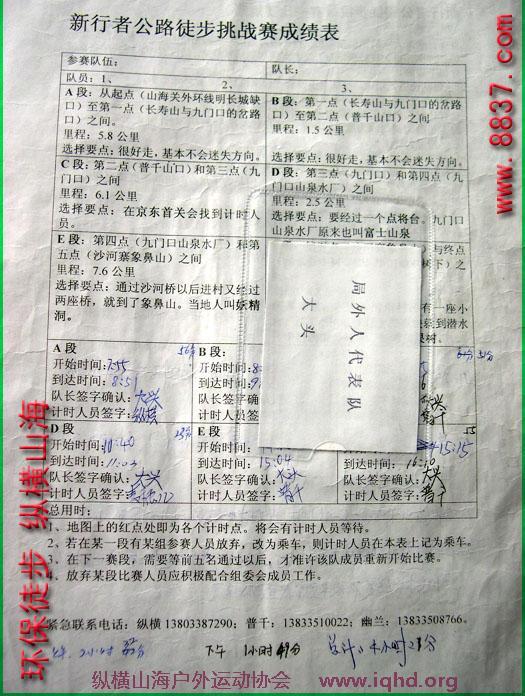 新行者公路徒步挑战赛成绩表
参赛队伍:
队长:
队员:1、 2、 3、
A 段:从起点(山海关外环线明长城缺
口)至第一点(长寿山与九门口的岔路
口)之间。
里程:5.8 公里
选择要点:很好走,基本不会迷失方向。
B 段:第一点(长寿山与九门口的岔路
口)至第二点(普千山口)之间
里程:1.5 公里
选择要点:很好走,基本不会迷失方向。
C 段:第二点(普千山口)和第三点(九
门口)之间
里程:6.1 公里
选择要点:在京东首关会找到计时人
员。
D 段:第三点(九门口)和第四点(九
门口山泉水厂)之间
里程:2.5 公里
选择要点:要经过一个点将台。九门口
山泉水厂原来也叫富士山泉
E 段:第四点(九门口山泉水厂)和第
五点(沙河寨象鼻山)之间
里程:7.6 公里
选择要点:通过沙河桥以后进村又经过
两座桥,就到了象鼻山。当地人叫妖精
洞。
与终点
树下)之
有一座小
到潜水
局外人代表队
大头
A 段
开始时间:7:55
到达时间:8:51
队长签字确认:大兴
计时人员签字:纵横
B 段:
开始时间:8
到达时间:9
队长签字确认:
计时人员签字:
D 段
10:40
到达时间:11:03
队长签字确认:大兴
计时人员签字:
E 段
15:04
到达时间:
队长签字确认:
计时人员签字:普千
15:15
到达时间:16:10
队长签字确认:大兴
计时人员签字:普千
总用时:
1、地图上的红点处即为各个计时点。将会有计时人员等待。
2、若在某一段有某组参赛人员放弃,改为乘车,则计时人员在本表上记为乘车。
3、在下一赛段,需要等前五名通过以后,才准许该队成员重新开始比赛。
4、放弃某段比赛人员应积极配合组委会成员工作。
紧急联系电话:纵横 13803387290;普千:13833510022;幽兰:13833508766。
下午 1小时49分
纵横山海户外运动协会 www.iqhd.org
环保徒步 纵横山海
www.8837.com